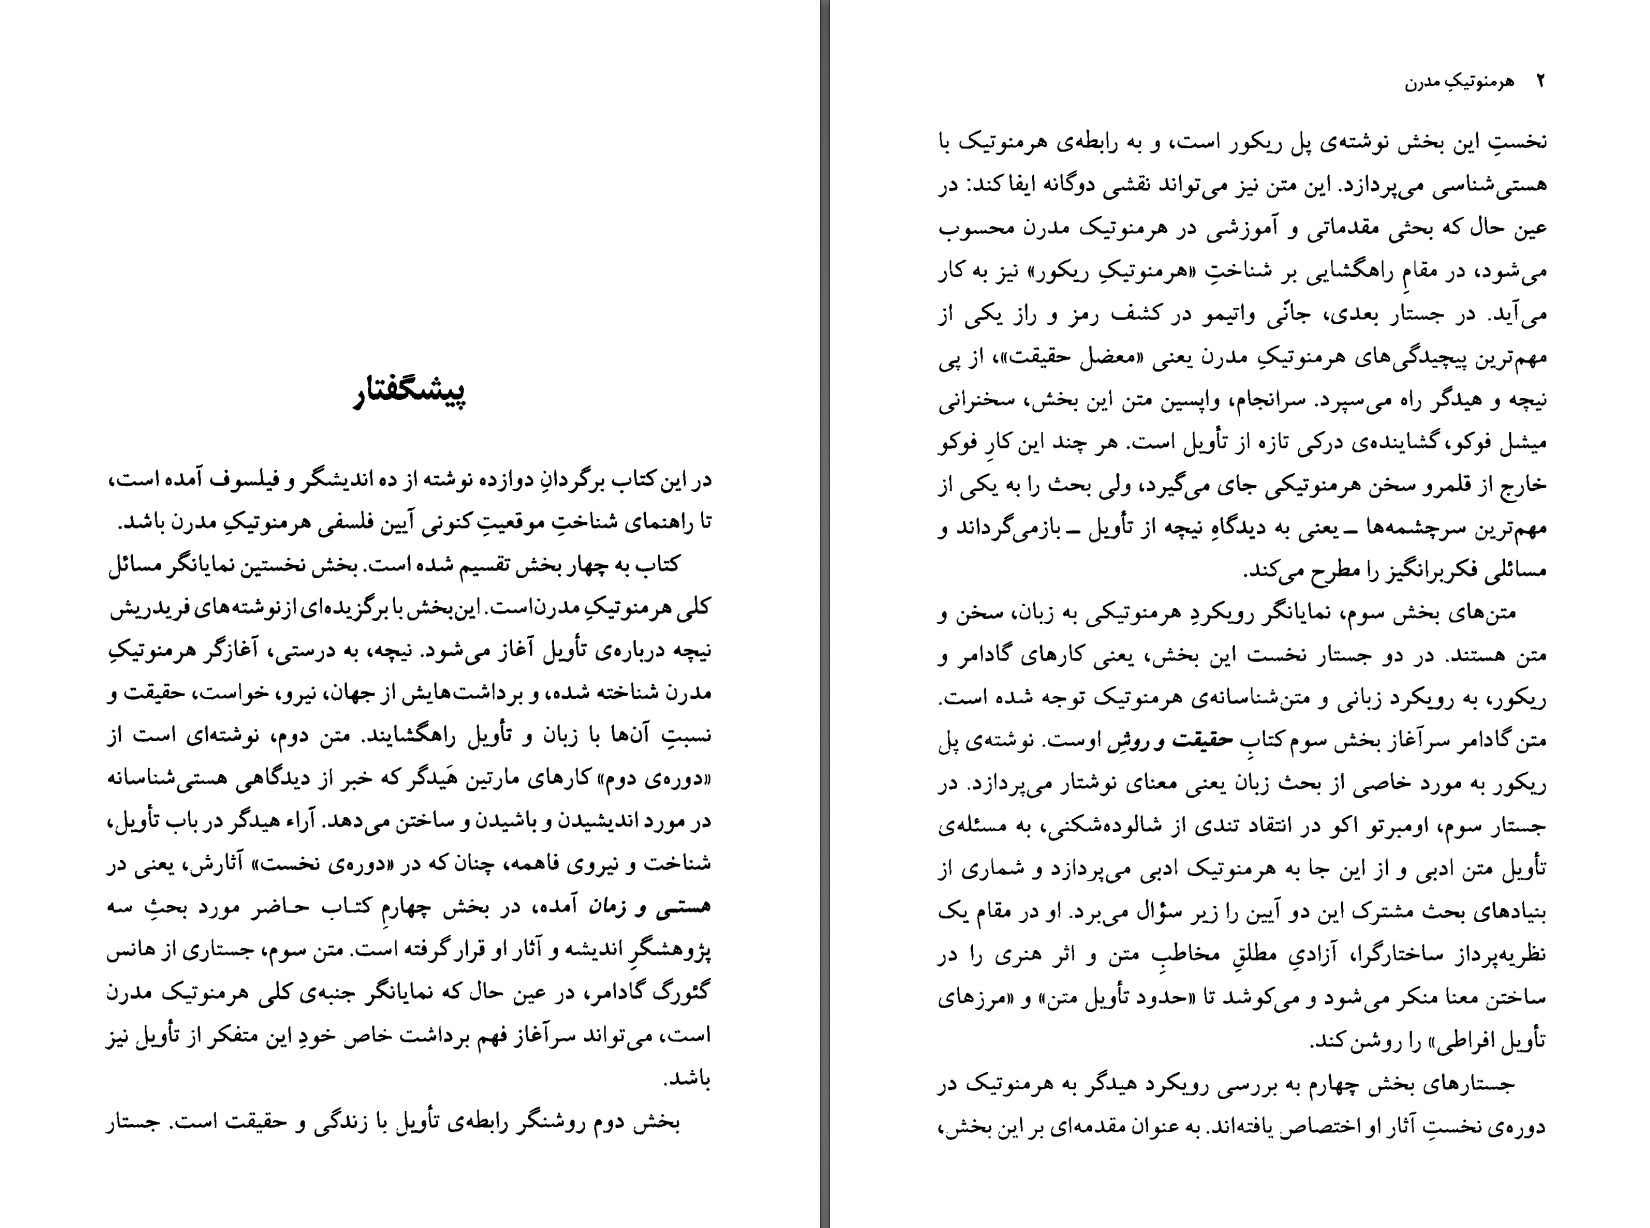 پیشگفتار
در این کتاب برگردانِ دوازده نوشته از ده اندیشگر و فیلسوف آمده است،
تا راهنمای شناختِ موقعیتِ کنونی آیین فلسفی هرمنوتیکِ مدرن باشد.
کتاب به چهار بخش تقسیم شده است. بخش نخستین نمایانگر مسائل
کلی هرمنوتیکِ مدرن‌است. این‌بخش با برگزیده‌ای ازنوشته‌های فریدریش
نیچه درباره‌ی تأویل آغاز می‌شود. نیچه، به درستی، آغازگر هرمنوتیکِ
مدرن شناخته شده، و برداشت‌هایش از جهان، نیرو، خواست، حقیقت و
نسبتِ آن‌ها با زبان و تأویل راهگشایند. متن دوم، نوشته‌ای است از
«دوره‌ی دوم» کارهای مارتین هَیدگر که خبر از دیدگاهی هستی‌شناسانه
در مورد اندیشیدن و باشیدن و ساختن می‌دهد. آراء هیدگر در باب تأویل،
شناخت و نیروی فاهمه، چنان که در «دوره‌ی نخست» آثارش، یعنی در
هستی و زمان آمده، در بخش چهارمِ کتاب حاضر مورد بحثِ سه
پژوهشگرِ اندیشه و آثار او قرار گرفته است. متن سوم، جستاری از هانس
گئورگ گادامر، در عین حال که نمایانگر جنبه‌ی کلی هرمنوتیک مدرن
است، می‌تواند سرآغاز فهم برداشت خاص خودِ این متفکر از تأویل نیز
باشد.
بخش دوم روشنگر رابطه‌ی تأویل با زندگی و حقیقت است. جستار
۲ هرمنوتیکِ مدرن
نخستِ این بخش نوشته‌ی پل ریکور است، و به رابطه‌ی هرمنوتیک با
هستی‌شناسی می‌پردازد. این متن نیز می‌تواند نقشی دوگانه ایفا کند: در
عین حال که بحثی مقدماتی و آموزشی در هرمنوتیک مدرن محسوب
می‌شود، در مقامِ راهگشایی بر شناختِ «هرمنوتیکِ ریکور» نیز به کار
می‌آید. در جستار بعدی، جانّی واتیمو در کشف رمز و راز یکی از
مهم‌ترین پیچیدگی‌های هرمنوتیکِ مدرن یعنی «معضل حقیقت»، از پی
نیچه و هیدگر راه می‌سپرد. سرانجام، واپسین متن این بخش، سخنرانی
میشل فوکو، گشاینده‌ی درکی تازه از تأویل است. هر چند این کارِ فوکو
خارج از قلمرو سخن هرمنوتیکی جای می‌گیرد، ولی بحث را به یکی از
مهم‌ترین سرچشمه‌ها ــ یعنی به دیدگاهِ نیچه از تأویل ــ بازمی‌گرداند و
مسائلی فکربرانگیز را مطرح می‌کند.
متن‌های بخش سوم، نمایانگر رویکردِ هرمنوتیکی به زبان، سخن و
متن هستند. در دو جستار نخست این بخش، یعنی کارهای گادامر و
ریکور، به رویکرد زبانی و متن‌شناسانه‌ی هرمنوتیک توجه شده است.
متن گادامر سرآغاز بخش سوم کتابِ حقیقت و روشِ اوست. نوشته‌ی پل
ریکور به مورد خاصی از بحث زبان یعنی معنای نوشتار می‌پردازد. در
جستار سوم، اومبرتو اکو در انتقاد تندی از شالوده‌شکنی، به مسئله‌ی
تأویل متن ادبی و از این جا به هرمنوتیک ادبی می‌پردازد و شماری از
بنیادهای بحث مشترک این دو آیین را زیر سؤال می‌برد. او در مقام یک
نظریه‌پرداز ساختارگرا، آزادیِ مطلقِ مخاطبِ متن و اثر هنری را در
ساختن معنا منکر می‌شود و می‌کوشد تا «حدود تأویل متن» و «مرزهای
تأویل افراطی» را روشن کند.
جستارهای بخش چهارم به بررسی رویکرد هیدگر به هرمنوتیک در
دوره‌ی نخستِ آثار او اختصاص یافته‌اند. به عنوان مقدمه‌ای بر این بخش،